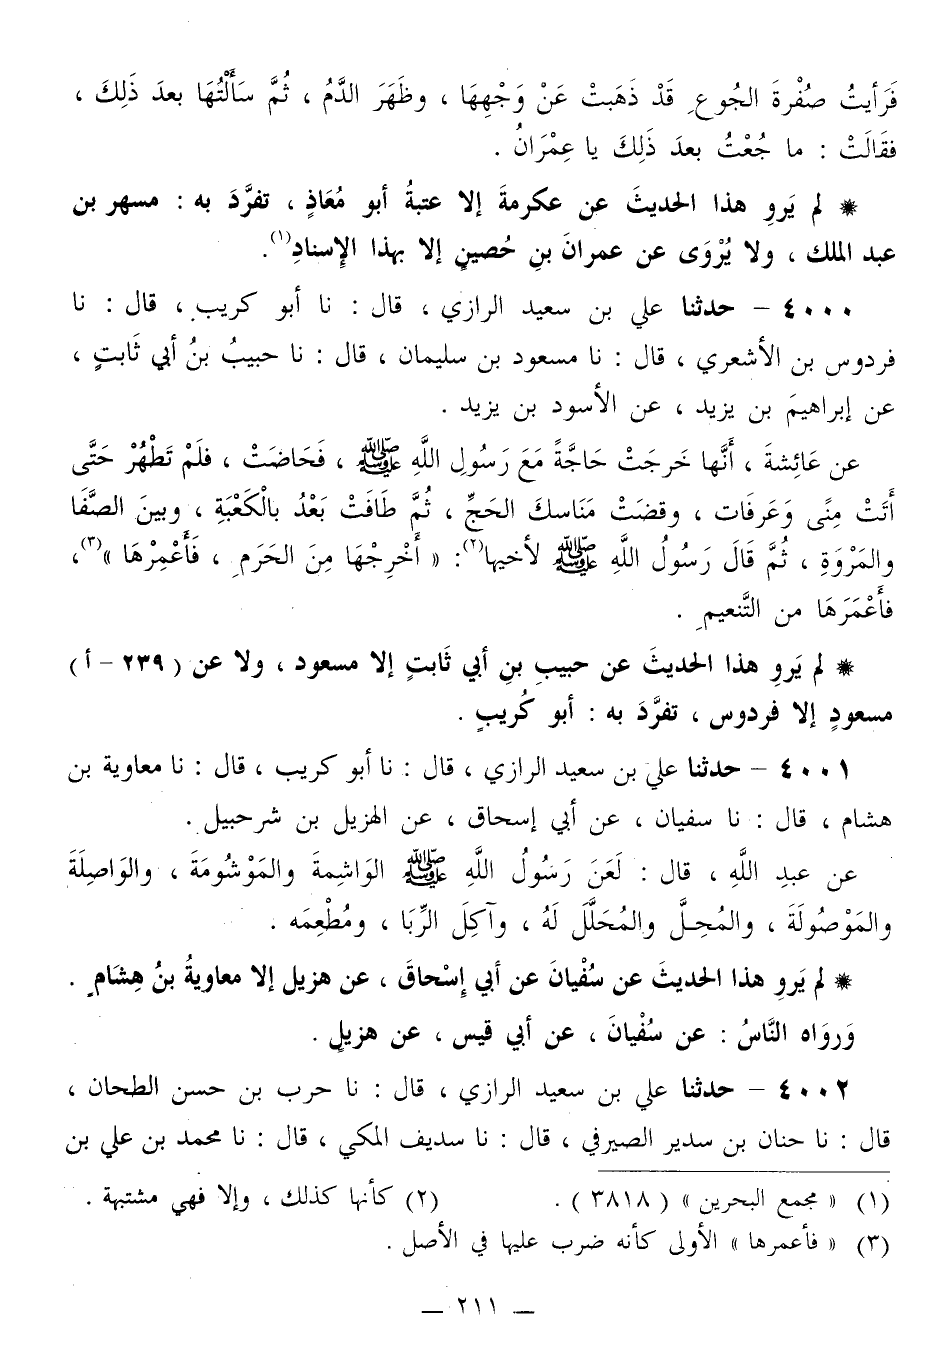 فَرَأيتُ صُفْرةَ الجُوعِ قَدْ ذَهَبتْ عَنْ وَجْهِهَا ، وظَهَرَ الدَّمُ ، ثُمَّ سَأَلْتُهَا بعدَ ذَلِكَ ،
فقَالَتْ : ما جُعْتُ بعدَ ذَلِكَ يا عِمْرَانُ .
* لم يَروِ هذا الحديثَ عن عكرمةَ إلا عتبةُ أبو مُعَاذٍ ، تفرَّدَ به : مسهر بن
عبد الملك ، ولا يُرْوَى عن عمرانَ بنِ حُصينٍ إلا بهذا الإِسنادِ(١).
٤٠٠٠ – حدثنا علي بن سعيد الرازي ، قال : نا أبو كريب ، قال : نا
فردوس بن الأشعري ، قال : نا مسعود بن سليمان ، قال : نا حبيبُ بنُ أبي ثَابتٍ ،
عن إبراهيمَ بن يزيد ، عن الأسود بن يزيد .
عن عَائِشةَ ، أَنَّها خَرجَتْ حَاجَّةً مَعَ رَسُولِ اللَّهِ ﷺ ، فَحَاضَتْ ، فلَمْ تَطْهُرْ حَتَّى
أَتَتْ مِنًى وَعَرفَات ، وقضَتْ مَنَاسكَ الحَجِّ ، ثُمَّ طَافَتْ بَعْدُ بالْكَعْبَةِ ، وبينَ الصَّفَا
والمَرْوَةِ ، ثُمَّ قَالَ رَسُولُ اللَّهِ ﷺ لأخيها(٢): « أَخْرِجْهَا مِنَ الحَرَمِ ، فَأَعْمِرْهَا »(٣)،
فأَعْمَرَهَا من التَّنعيمِ .
* لم يَروِ هذا الحديثَ عن حبيبِ بنِ أبي ثَابتٍ إلا مسعود ، ولا عن ( ٢٣٩ – أ )
مسعودٍ إلا فردوس ، تفرَّدَ به : أبو كُريبٍ .
٤٠٠١ – حدثنا علي بن سعيد الرازي ، قال : نا أبو كريب ، قال : نا معاوية بن
هشام ، قال : نا سفيان ، عن أبي إسحاق ، عن الهزيل بن شرحبيل .
عن عبدِ اللَّهِ ، قال : لَعَنَ رَسُولُ اللَّهِ ﷺ الوَاشِمةَ والمَوْشُومَةَ ، والوَاصِلَةَ
والمَوْصُولَةَ ، والمُحِلَّ والمُحَلَّلَ لَهُ ، وآكِلَ الرِّبَا ، ومُطْعِمَه .
* لم يَروِ هذا الحديثَ عن سُفْيانَ عن أبي إسْحاقَ ، عن هزيل إلا معاويةُ بنُ هِشَامٍ .
وَرواه النَّاسُ : عن سُفْيانَ ، عن أبي قيس ، عن هزيلٍ .
٤٠٠٢ – حدثنا علي بن سعيد الرازي ، قال : نا حرب بن حسن الطحان ،
قال : نا حنان بن سدير الصيرفي ، قال : نا سديف المكي ، قال : نا محمد بن علي بن
(١) « مجمع البحرين » ( ٣٨١٨ ) . (٢) كأنها كذلك ، وإلا فهي مشتبهة .
(٣) « فأعمرها » الأولى كأنه ضرب عليها في الأصل .
— ٢١١ —